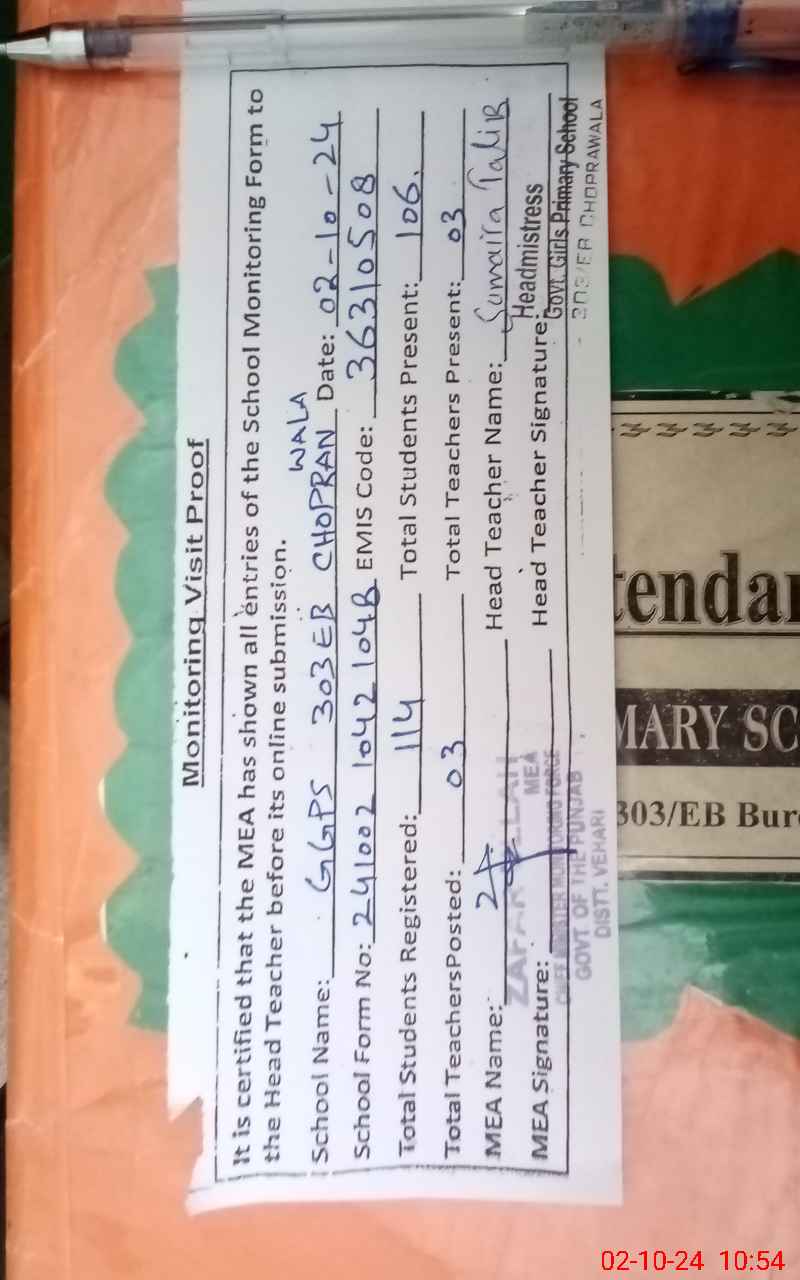 Monitoring Visit Proof
It is certified that the MEA has shown all entries of the School Monitoring Form to
the Head Teacher before its online submission.
School Name: GGPS 303EB CHOPRAN WALA Date: 02-10-24
School Form No: 241002 1042 104B EMIS Code: 36310508
Total Students Registered: 114 Total Students Present: 106.
Total TeachersPosted: 03 Total Teachers Present: 03
MEA Name: Head Teacher Name: Sumaira Talib
MEA Signature: Head Teacher Signature:
MEA
CHIEF MINISTER MONITORING FORCE
GOVT OF THE PUNJAB
DISTT. VEHARI
Headmistress
Govt. Girls Primary School
303/EB CHOPRAWALA
tendan
MARY SC
303/EB Bure
02-10-24 10:54